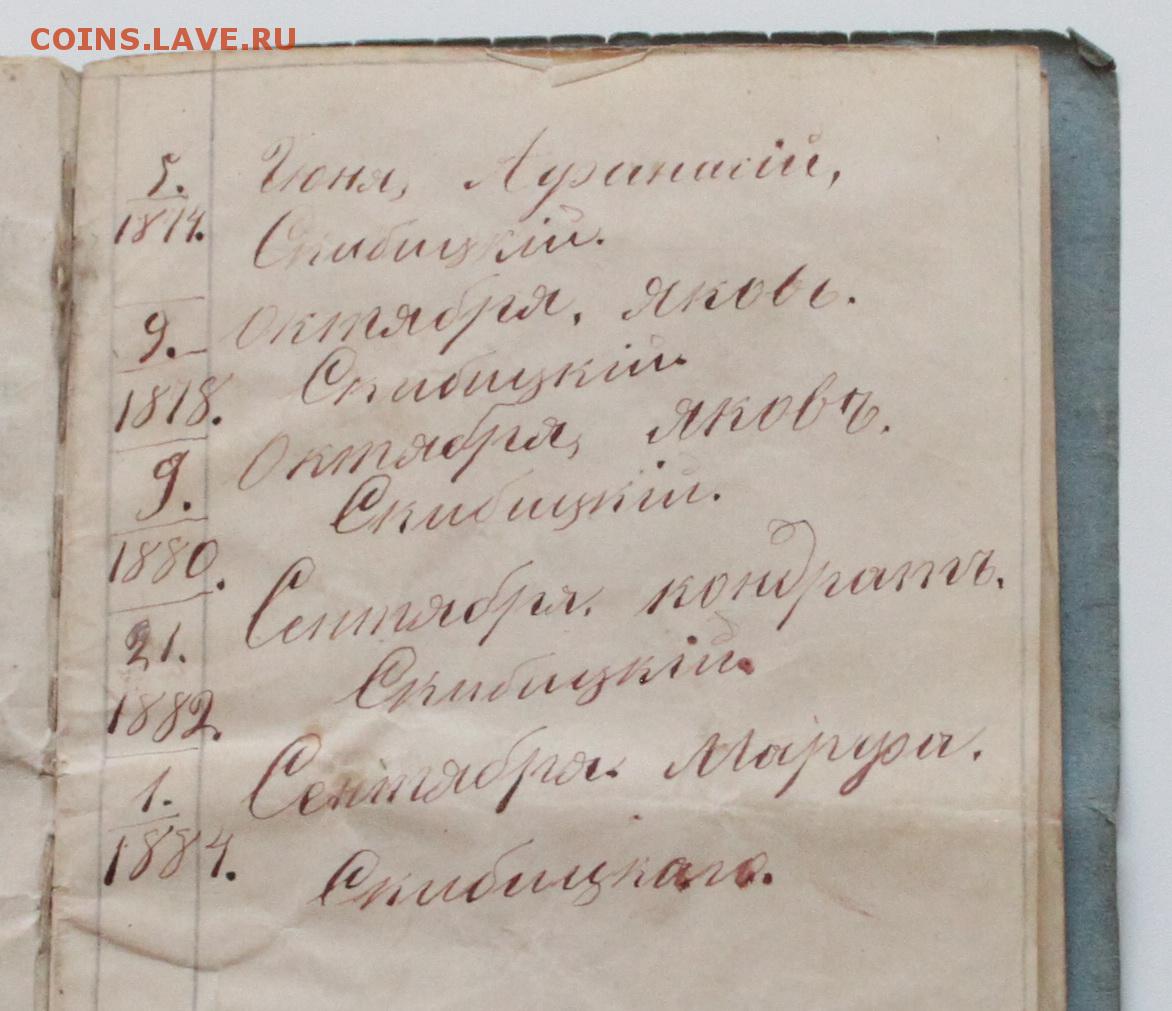 COINS.LAVE.RU
5. Іюня, Афанасій,
1874. Скибицкій.
9. Октября, яковъ.
1878. Скибицкій.
9. Октября, яковъ.
1880. Скибицкій.
21. Сентября. кондратъ.
1882. Скибицкій.
1. Сентября. Марфа.
1884. Скибицкаго.